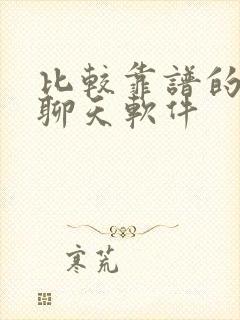 比較靠譜的
聊天軟件
寒荒